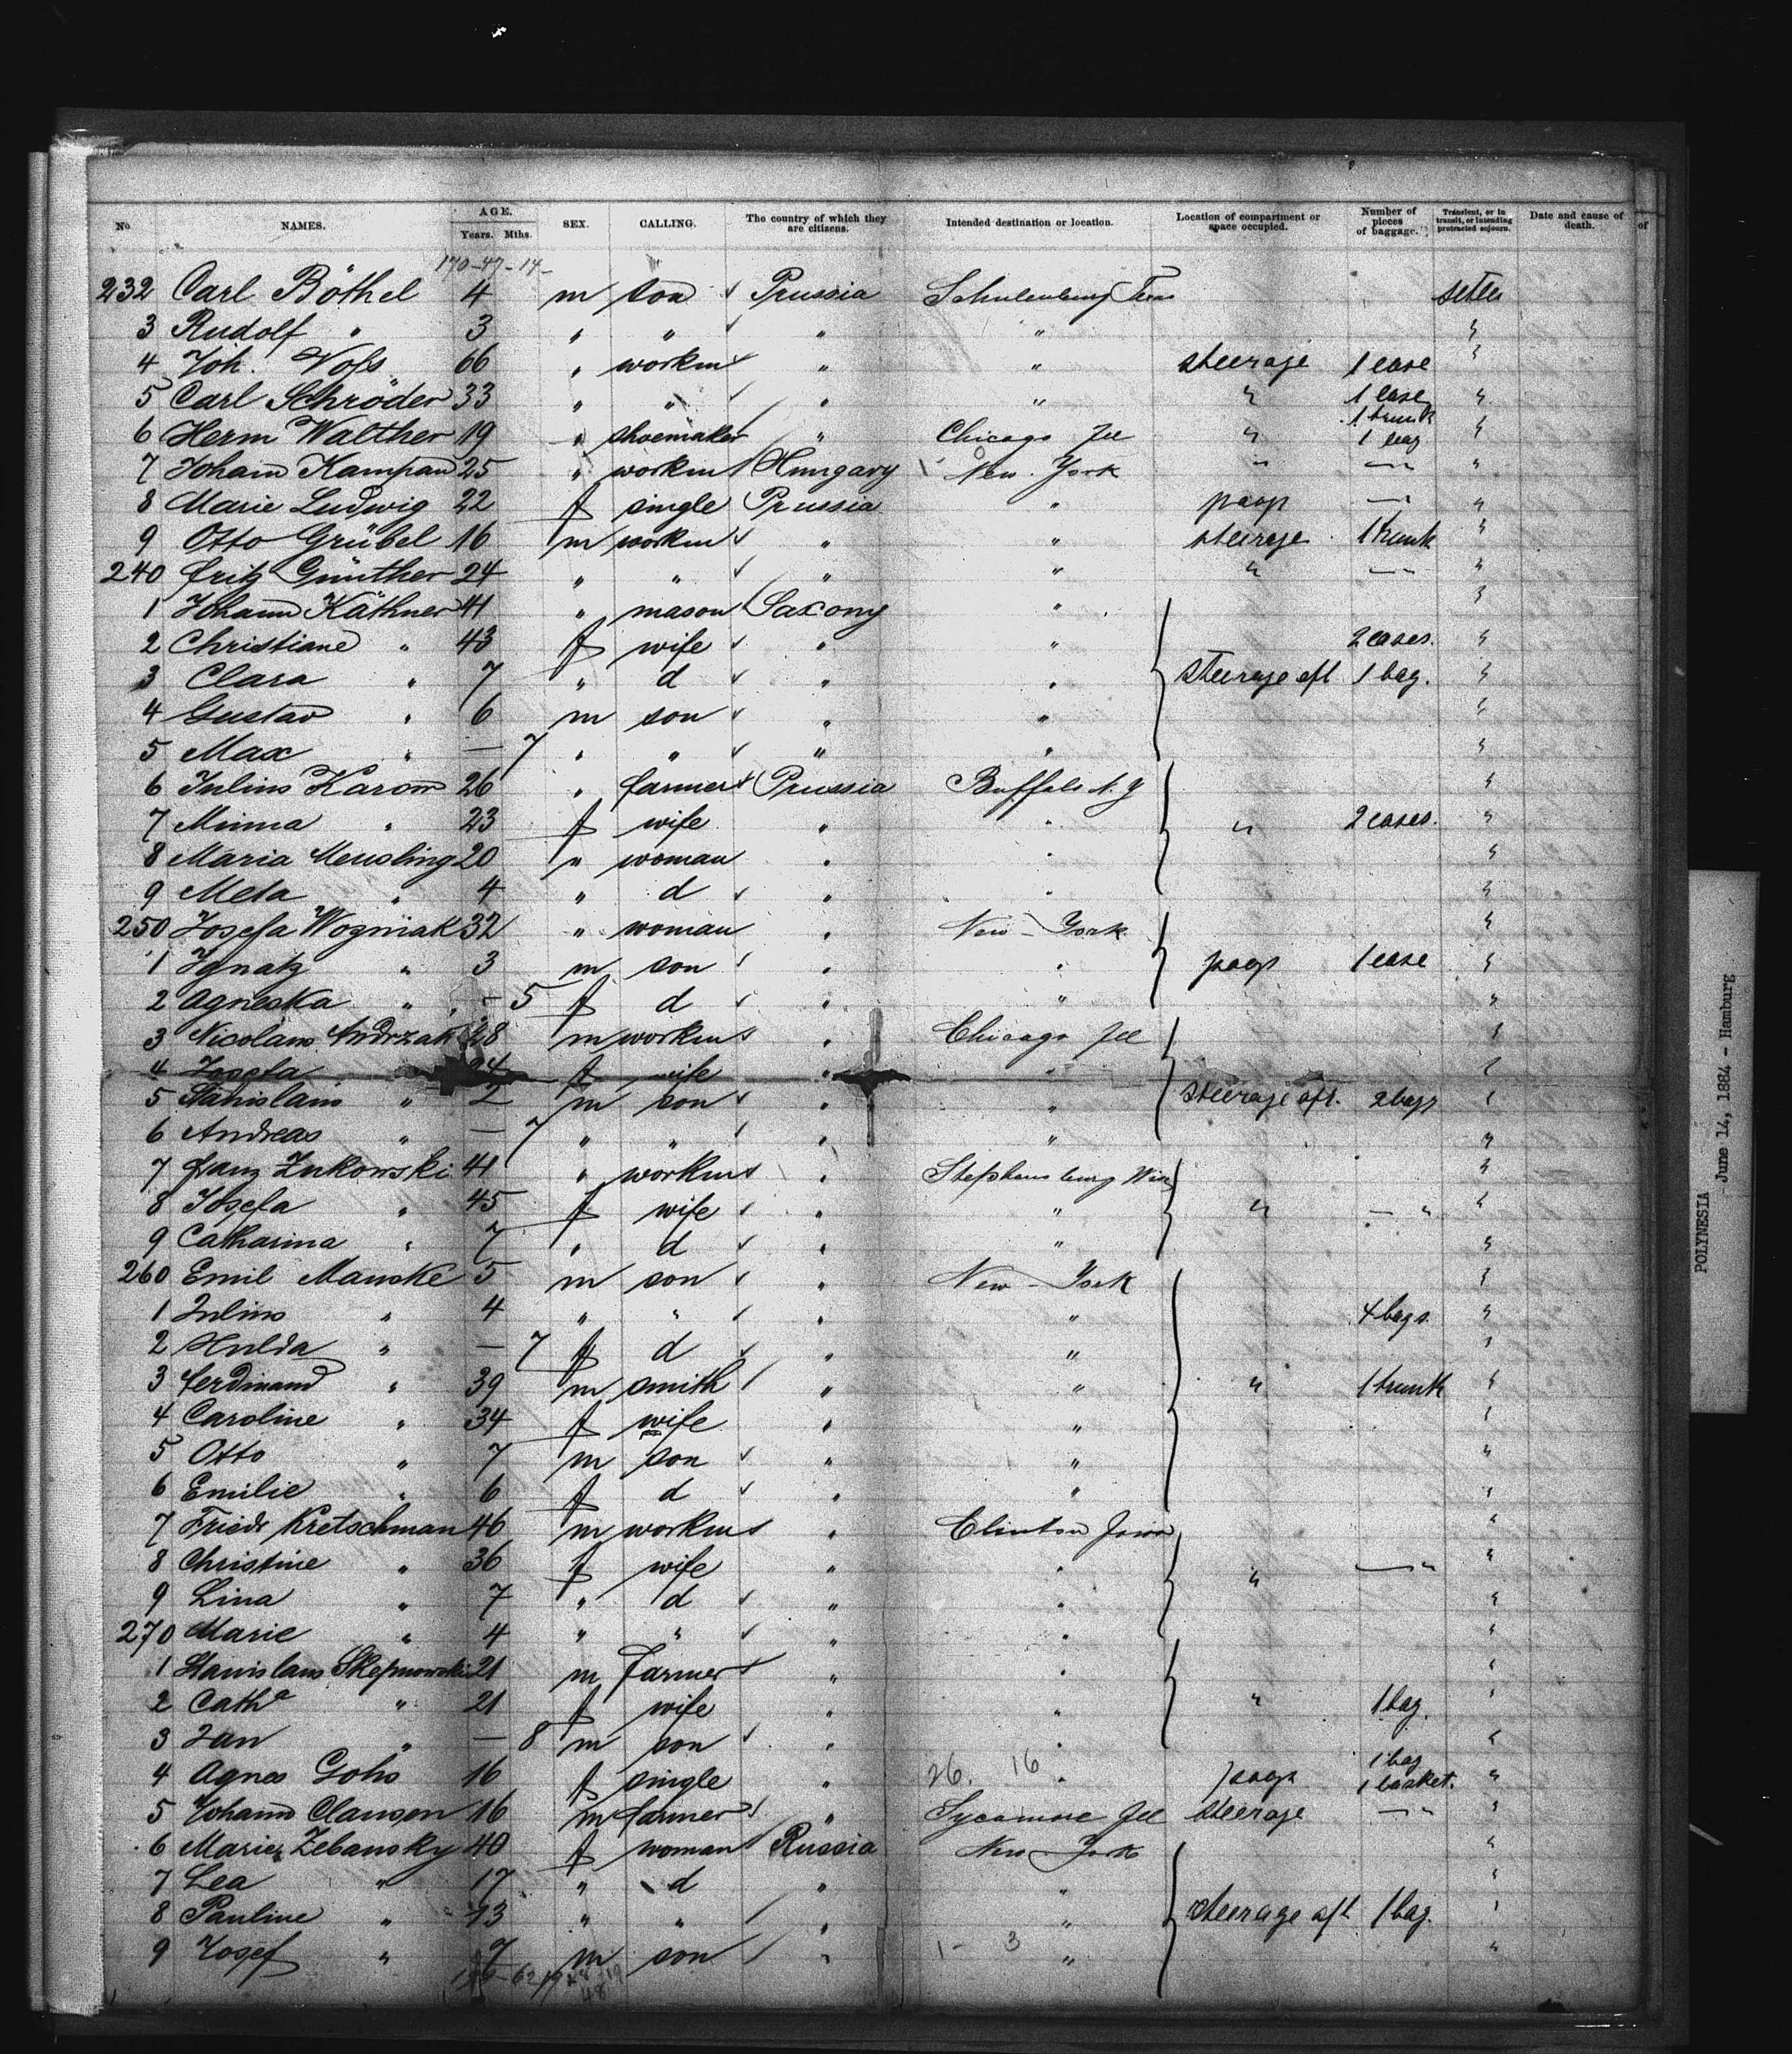 No NAMES. AGE. Years. Mths. SEX. CALLING. The country of which they are citizens. Intended destination or location. Location of compartment or space occupied. Number of pieces of baggage. Transient, or in transit, or intending protracted sojourn. Date and cause of death. of
170-47-14-
232 Carl Böthel 4 m son Prussia Schulenburg Texas
3 Rudolf " 3 " " " " "
4 Joh. Voss 66 " workm " " steerage 1 case "
5 Carl Schröder 33 " " " " " 1 case 1 trunk "
6 Herm Walther 19 " shoemaker " Chicago Ill " 1 bag "
7 Johann Kampan 25 " workm Hungary New York " — " "
8 Marie Ludwig 22 f single Prussia " poop — " "
9 Otto Grübel 16 m workm " " steerage 1 trunk "
240 Fritz Günther 24 " " " " " — " "
1 Johann Käthner 41 " mason Saxony " "
2 Christiane " 43 f wife " " 2 cases. "
3 Clara " 7 " d " " steerage aft 1 bag. "
4 Gustav " 6 m son " " "
5 Max " — 7 " " " " "
6 Julius Karow 26 " farmer Prussia Buffalo N.Y "
7 Minna " 23 f wife " " " 2 cases. "
8 Maria Meusling 20 " woman " " "
9 Meta " 4 " d " " "
250 Josefa Wozniak 32 " woman " New-York "
1 Ignatz " 3 m son " " poop 1 case "
2 Agneska " — 5 f d " " "
3 Nicolaus Andrzak 28 m workm " Chicago Ill "
4 Josefa " 24 f wife " " "
5 Stanislaus " 2 m son " " steerage aft. 2 bags "
6 Andreas " — 7 " " " " "
7 Franz Zukowski 41 " workm " Stephensburg Wis "
8 Josefa " 45 f wife " " " — " "
9 Catharina " 7 " d " " "
260 Emil Manske 5 m son " New-York "
1 Julius " 4 " " " " 4 bags. "
2 Hulda " — 7 f d " " "
3 Ferdinand " 39 m smith " " " 1 trunk "
4 Caroline " 34 f wife " " "
5 Otto " 7 m son " " "
6 Emilie " 6 f d " " "
7 Friedr Kretschman 46 m workm " Clinton Iowa "
8 Christine " 36 f wife " " " — " "
9 Lina " 7 " d " " "
270 Marie " 4 " " " " "
1 Stanislaus 21 m farmer " " "
2 Catha " 21 f wife " " " 1 bag. "
3 Jan " — 8 m son " " "
4 Agnes Gohs 16 f single " 26. 16 " poop 1 bag 1 basket. "
5 Johann Clausen 16 m farmer " Sycamore Ill steerage — " "
6 Marie Zebansky 40 f woman Russia New York "
7 Lea " 17 " d " " "
8 Pauline " 13 " " " " steerage aft 1 bag. "
9 Josef " 7 m son " 1- 3 " "
48
POLYNESIA
June 14, 1884 - Hamburg